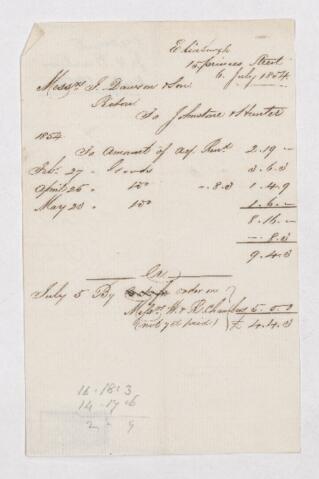 Edinburgh
15 princes Street
6 July 1854
Messrs J. Dawson & Son
To Johnstone & Hunter
1854
To Amount of a/c Rend. 2.19 -
Feb. 27 " Goods 3.6.3
April 26 " Do " .8.3 1.4.9
May 23 " Do 1.6.-
8.16.-
-.8.3
9.4.3
Cr
July 5 By order on
Messrs W. & R. Chambers 5.0.0
(not yet paid) £4.4.3
16.18.3
14.17.6
2 - 9